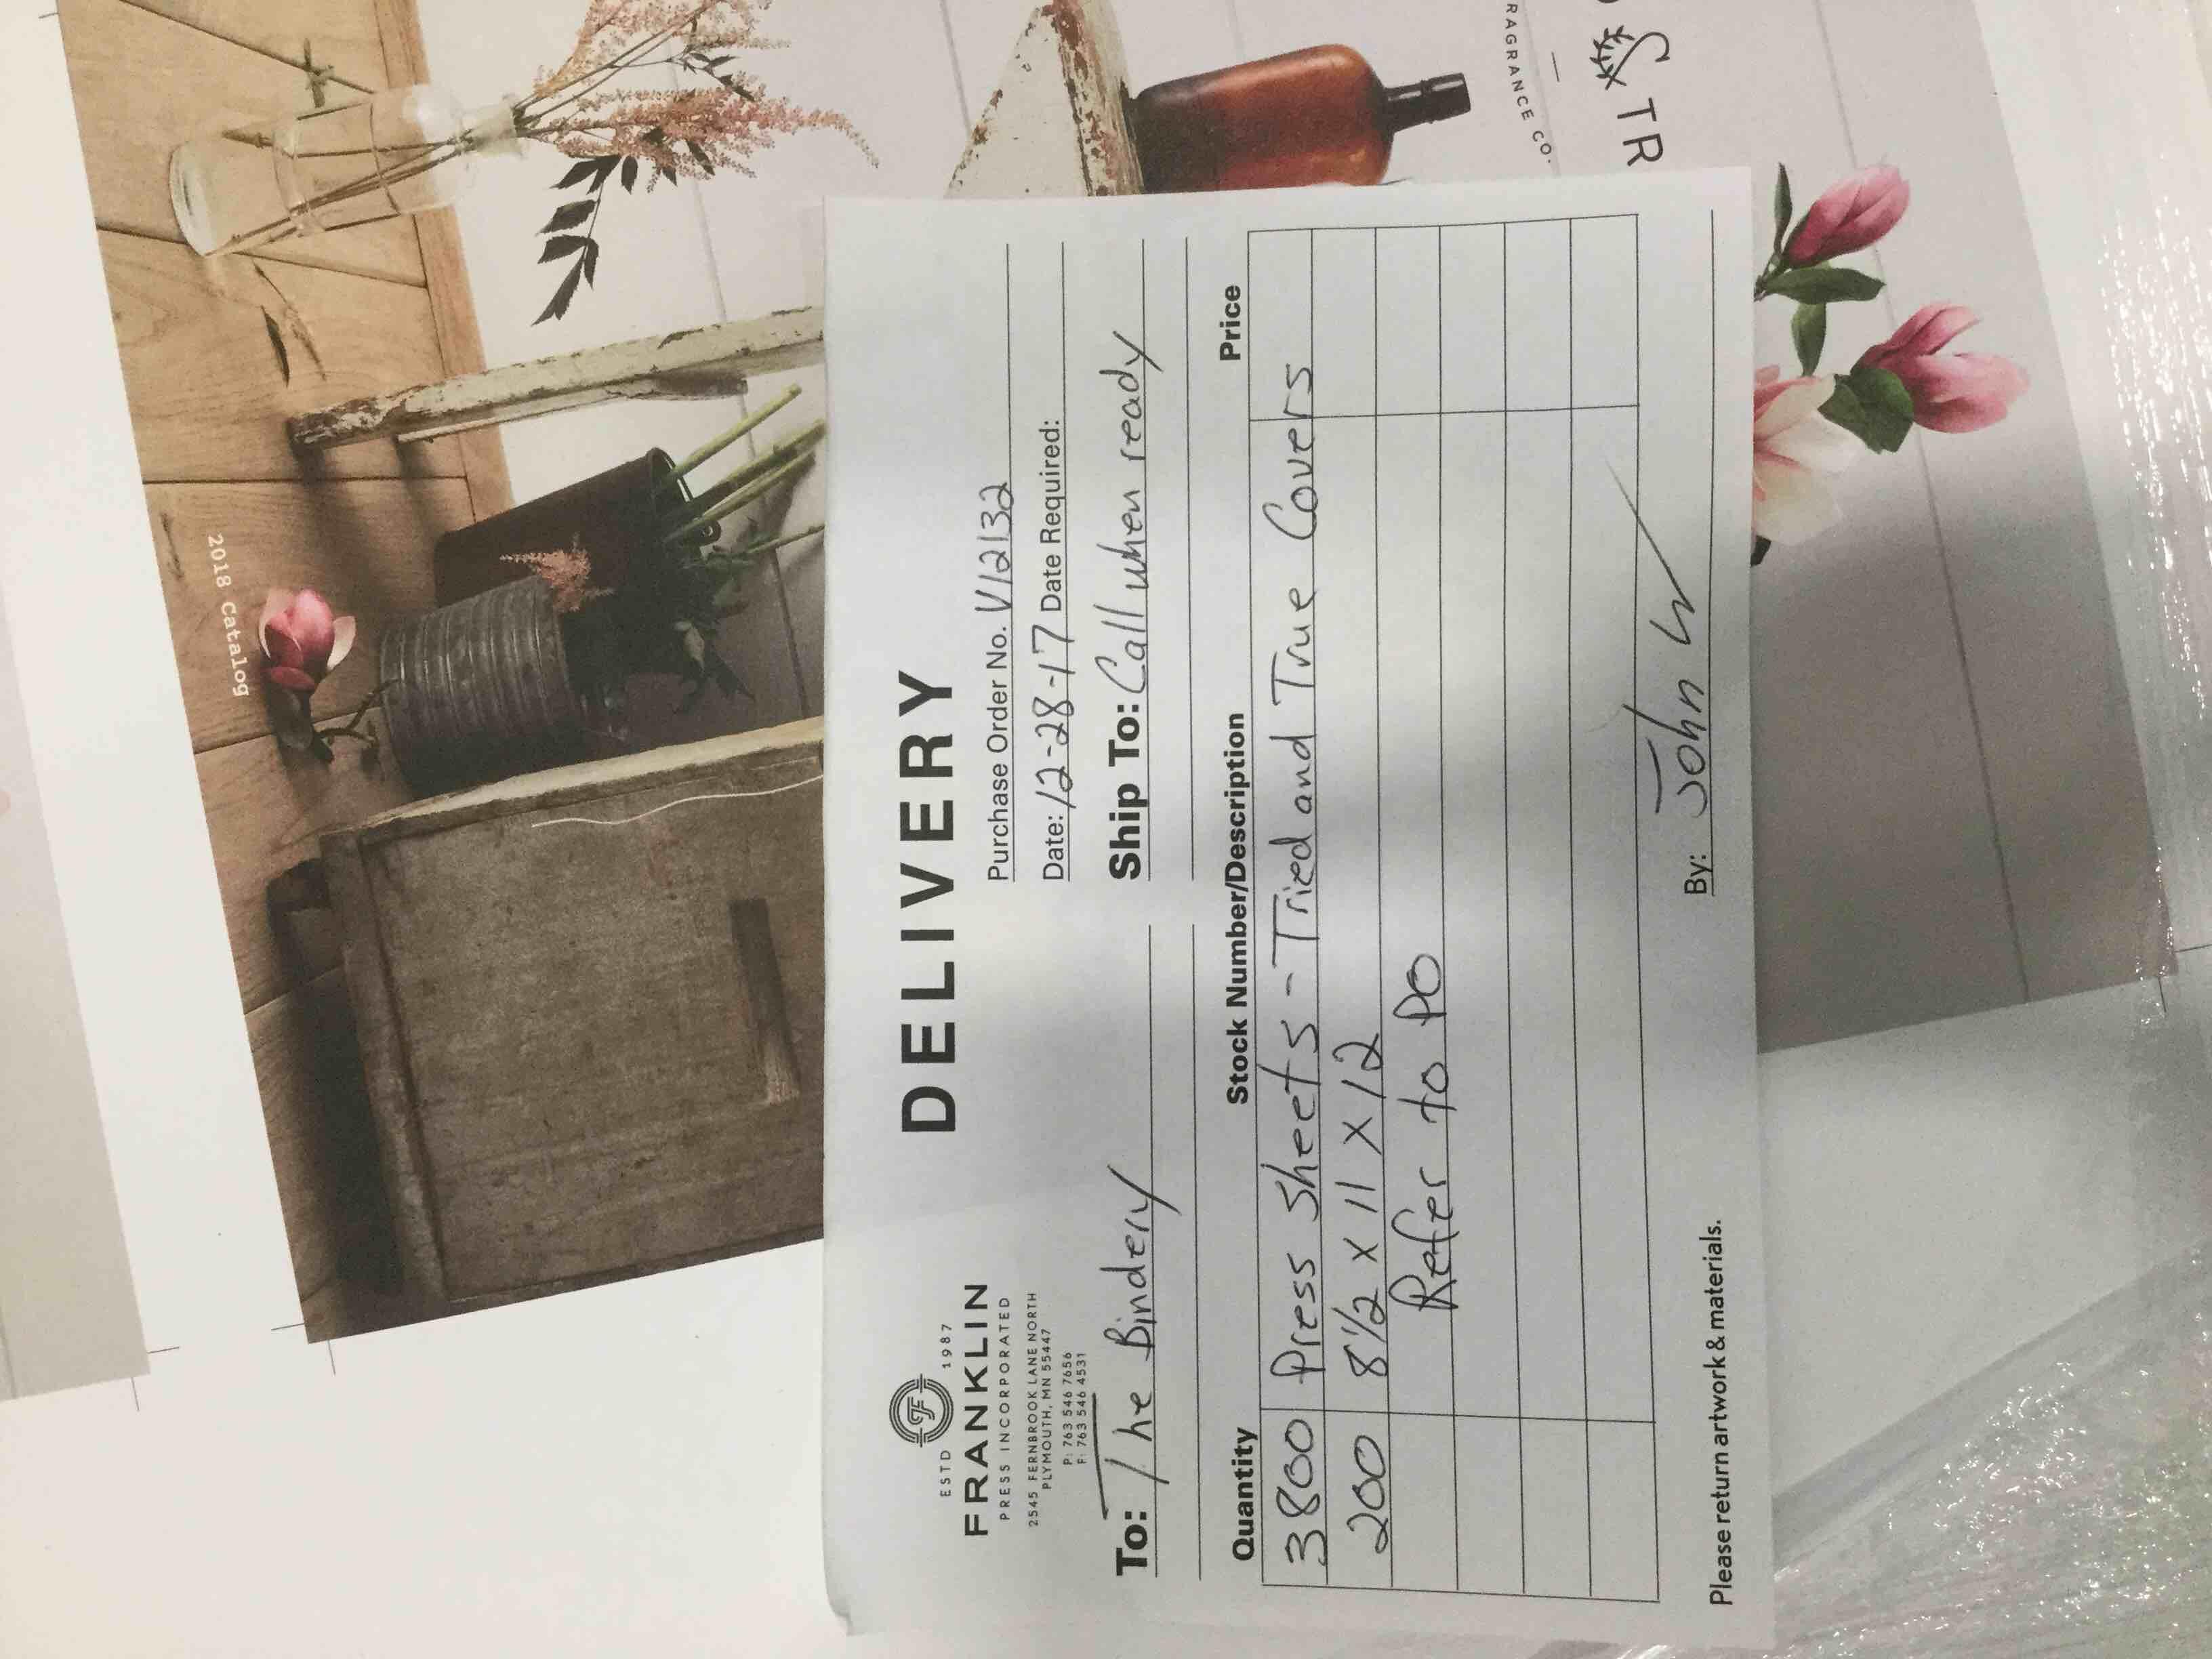 DELIVERY
ESTD 1987
FRANKLIN
PRESS INCORPORATED
2545 FERNBROOK LANE NORTH
PLYMOUTH, MN 55447
P: 763 546 7656
F: 763 546 4531
Purchase Order No. V12132
Date: 12-28-17 Date Required:
To: The Bindery
Ship To: Call when ready
Quantity Stock Number/Description Price
3800 Press Sheets - Tried and True Covers
200 8 1/2 x 11 x 12
Refer to PO
By: John W
Please return artwork & materials.
2018 Catalog
RAGRANCE CO.
TR